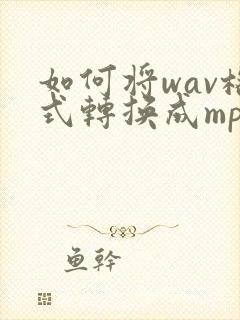 如何将wav格
式轉換成mp
鱼幹